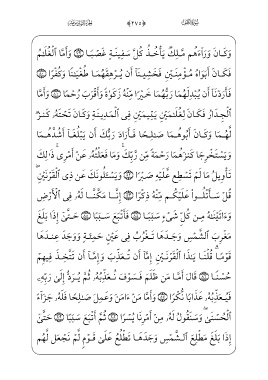 وَكَانَ وَرَآءَهُم مَّلِكٌ يَأْخُذُ كُلَّ سَفِينَةٍ غَصْبًا ۝ وَأَمَّا ٱلْغُلَـٰمُ
فَكَانَ أَبَوَاهُ مُؤْمِنَيْنِ فَخَشِينَآ أَن يُرْهِقَهُمَا طُغْيَـٰنًا وَكُفْرًا ۝
فَأَرَدْنَآ أَن يُبْدِلَهُمَا رَبُّهُمَا خَيْرًا مِّنْهُ زَكَوٰةً وَأَقْرَبَ رُحْمًا ۝ وَأَمَّا
ٱلْجِدَارُ فَكَانَ لِغُلَـٰمَيْنِ يَتِيمَيْنِ فِى ٱلْمَدِينَةِ وَكَانَ تَحْتَهُۥ كَنزٌ
لَّهُمَا وَكَانَ أَبُوهُمَا صَـٰلِحًا فَأَرَادَ رَبُّكَ أَن يَبْلُغَآ أَشُدَّهُمَا
وَيَسْتَخْرِجَا كَنزَهُمَا رَحْمَةً مِّن رَّبِّكَ وَمَا فَعَلْتُهُۥ عَنْ أَمْرِى ذَٰلِكَ
تَأْوِيلُ مَا لَمْ تَسْطِع عَّلَيْهِ صَبْرًا ۝ وَيَسْـَٔلُونَكَ عَن ذِى ٱلْقَرْنَيْنِ
قُلْ سَأَتْلُوا۟ عَلَيْكُم مِّنْهُ ذِكْرًا ۝ إِنَّا مَكَّنَّا لَهُۥ فِى ٱلْأَرْضِ
وَءَاتَيْنَـٰهُ مِن كُلِّ شَىْءٍ سَبَبًا ۝ فَأَتْبَعَ سَبَبًا ۝ حَتَّىٰٓ إِذَا بَلَغَ
مَغْرِبَ ٱلشَّمْسِ وَجَدَهَا تَغْرُبُ فِى عَيْنٍ حَمِئَةٍ وَوَجَدَ عِندَهَا
قَوْمًا قُلْنَا يَـٰذَا ٱلْقَرْنَيْنِ إِمَّآ أَن تُعَذِّبَ وَإِمَّآ أَن تَتَّخِذَ فِيهِمْ
حُسْنًا ۝ قَالَ أَمَّا مَن ظَلَمَ فَسَوْفَ نُعَذِّبُهُۥ ثُمَّ يُرَدُّ إِلَىٰ رَبِّهِۦ
فَيُعَذِّبُهُۥ عَذَابًا نُّكْرًا ۝ وَأَمَّا مَنْ ءَامَنَ وَعَمِلَ صَـٰلِحًا فَلَهُۥ جَزَآءً
ٱلْحُسْنَىٰ وَسَنَقُولُ لَهُۥ مِنْ أَمْرِنَا يُسْرًا ۝ ثُمَّ أَتْبَعَ سَبَبًا ۝ حَتَّىٰٓ
إِذَا بَلَغَ مَطْلِعَ ٱلشَّمْسِ وَجَدَهَا تَطْلُعُ عَلَىٰ قَوْمٍ لَّمْ نَجْعَل لَّهُم